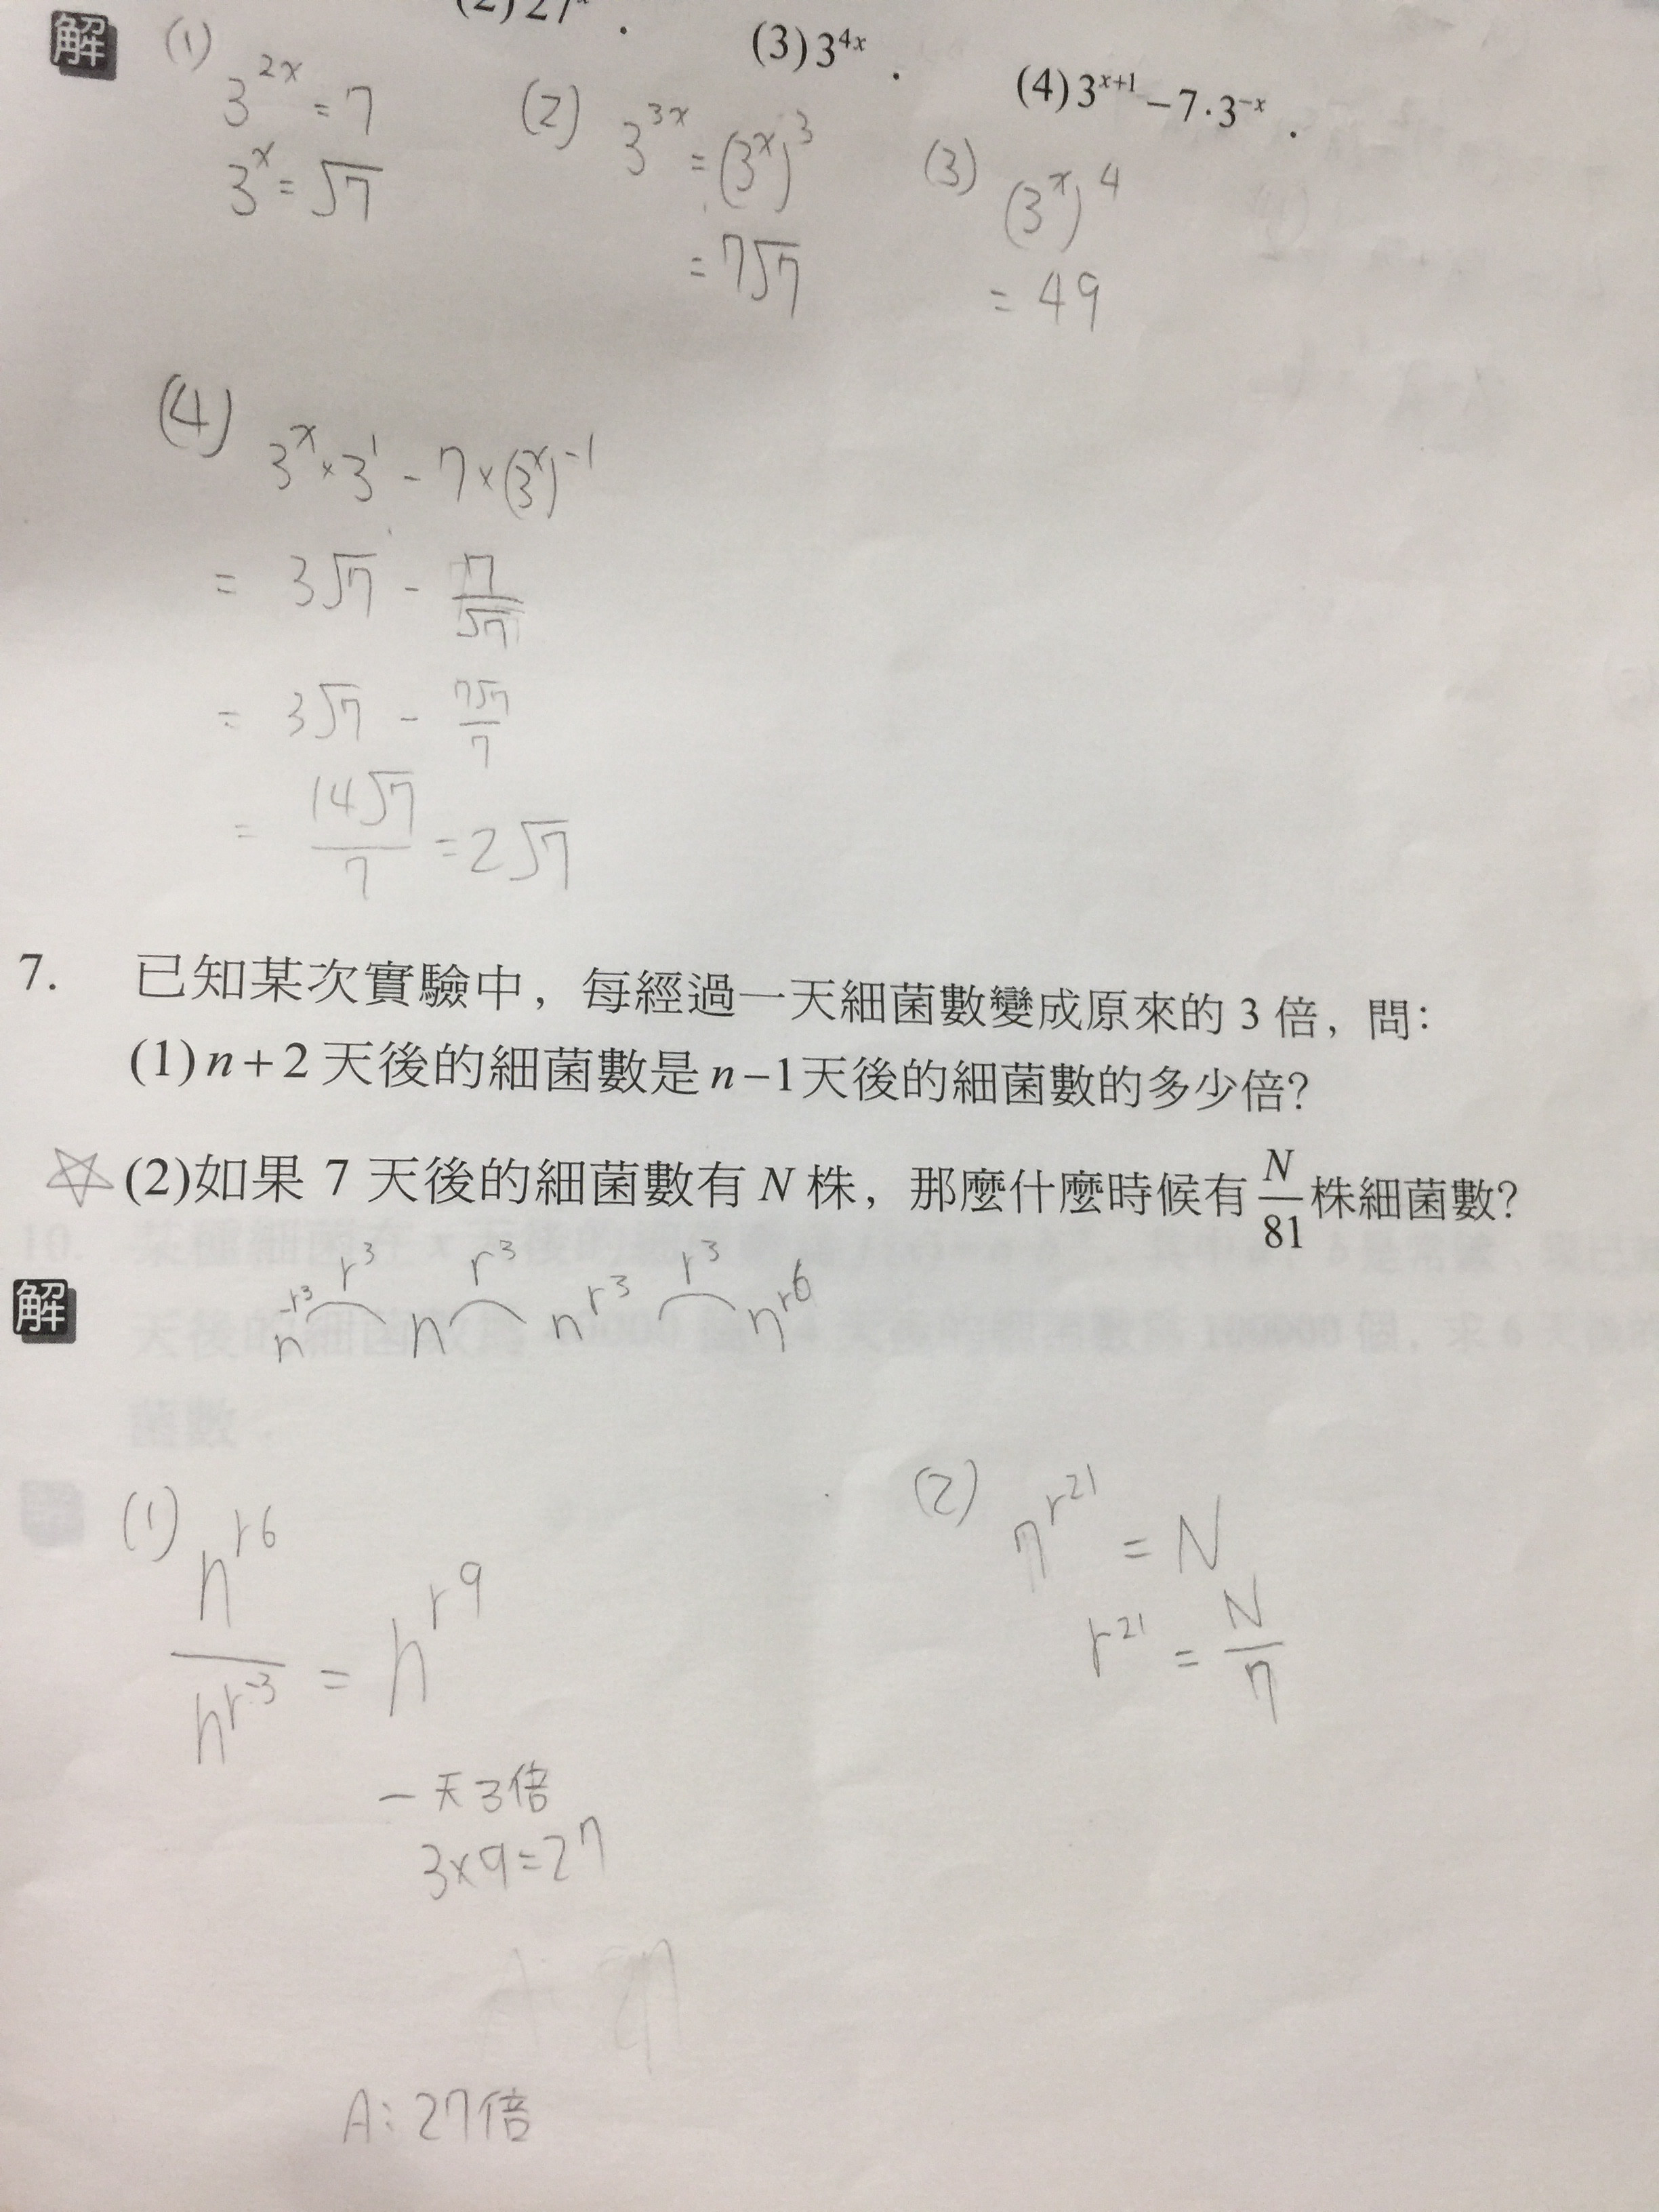 (2) 27ˣ .
(3) 3⁴ˣ .
(4) 3ˣ⁺¹ − 7·3⁻ˣ .
解
(1)
3²ˣ = 7
3ˣ = √7
(2) 3³ˣ = (3ˣ)³
= 7√7
(3) (3ˣ)⁴
= 49
(4)
3ˣ × 3¹ - 7 × (3ˣ)⁻¹
= 3√7 - 7/√7
= 3√7 - 7√7/7
= 14√7/7 = 2√7
7. 已知某次實驗中，每經過一天細菌數變成原來的 3 倍，問：
(1) n+2 天後的細菌數是 n−1 天後的細菌數的多少倍？
(2)如果 7 天後的細菌數有 N 株，那麼什麼時候有 N/81 株細菌數？
解
r³ r³ r³
n^-r³ n n^r³ n^r6
(1) n^r6 / n^r-3 = n^r9
一天3倍
3×9=27
A: 27倍
(2) n^r21 = N
r²¹ = N/n